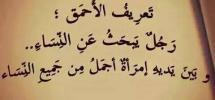 تَعرِيفُ الأَحمَق ؛
رَجُلٌ يَبحَثُ عَنِ النِّسَاءِ..
و بَينَ يَديهِ إمرَأةٌ أجمَلُ مِن جَميعِ النِّسَاء